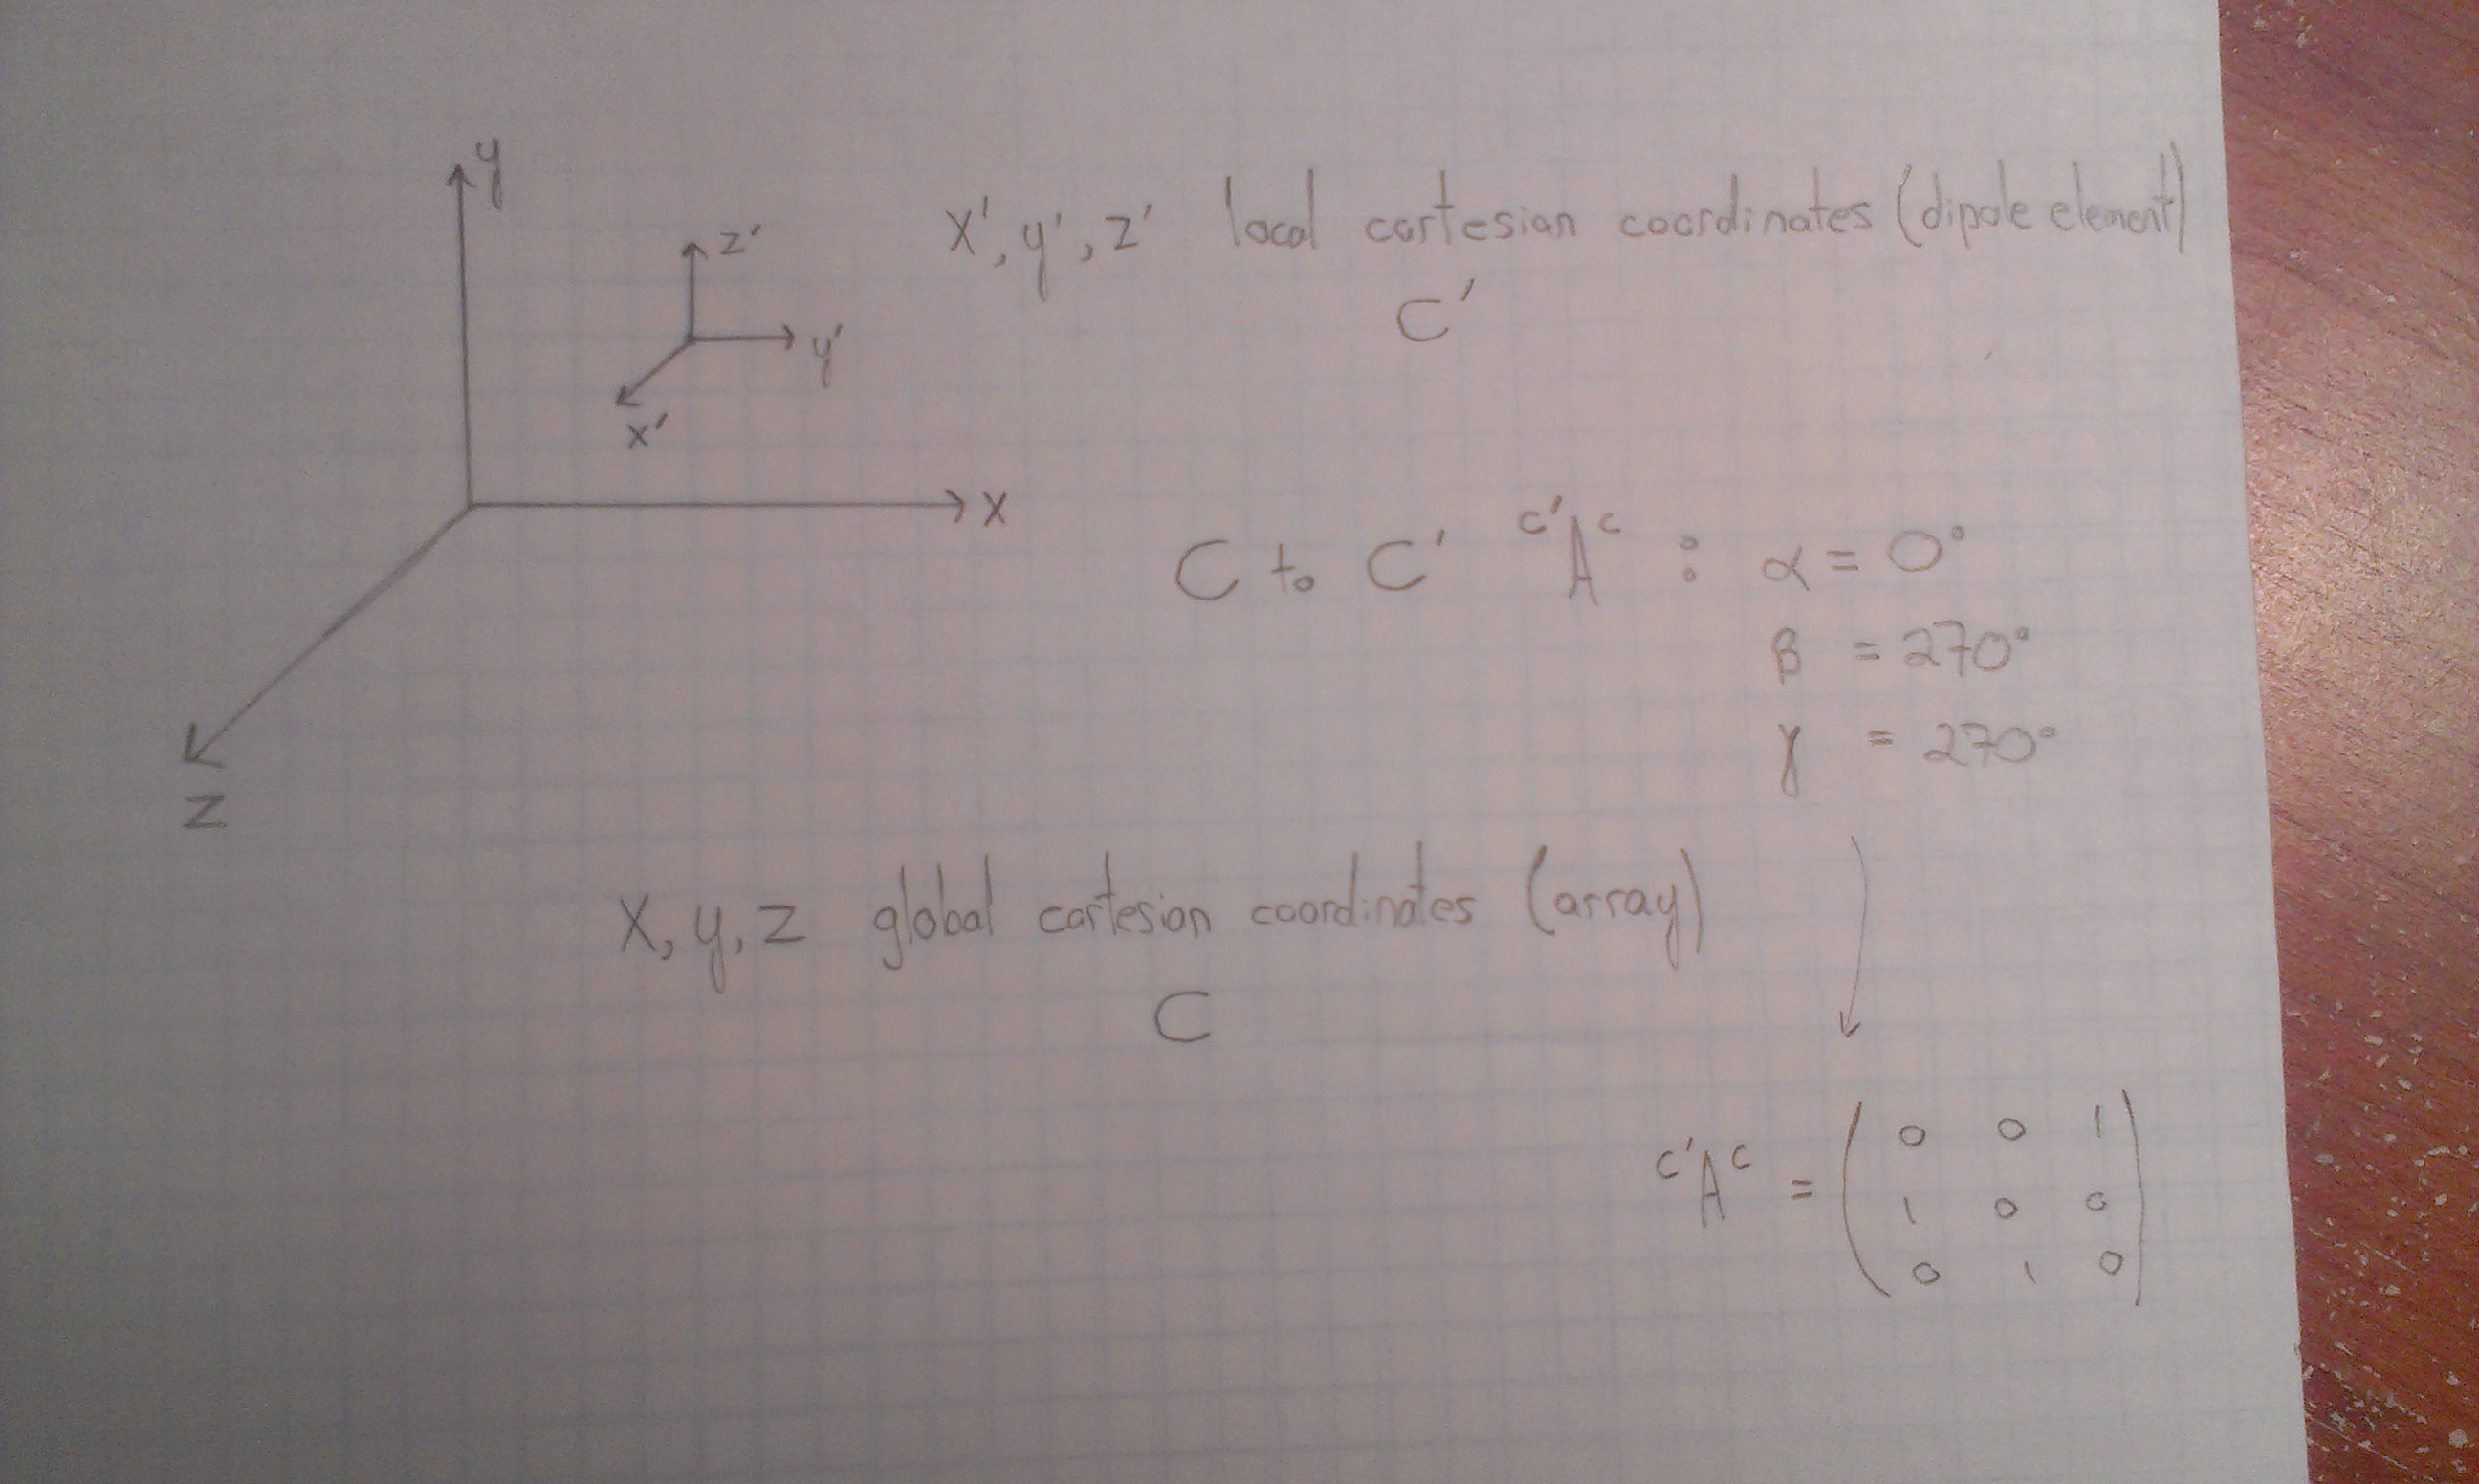 y
z'
y'
x'
x
z
x', y', z' local cartesian coordinates (dipole element)
C'
C to C' C'AC : α = 0°
β = 270°
γ = 270°
x, y, z global cartesian coordinates (array)
C
C'AC = ( 0 0 1
1 0 0
0 1 0 )